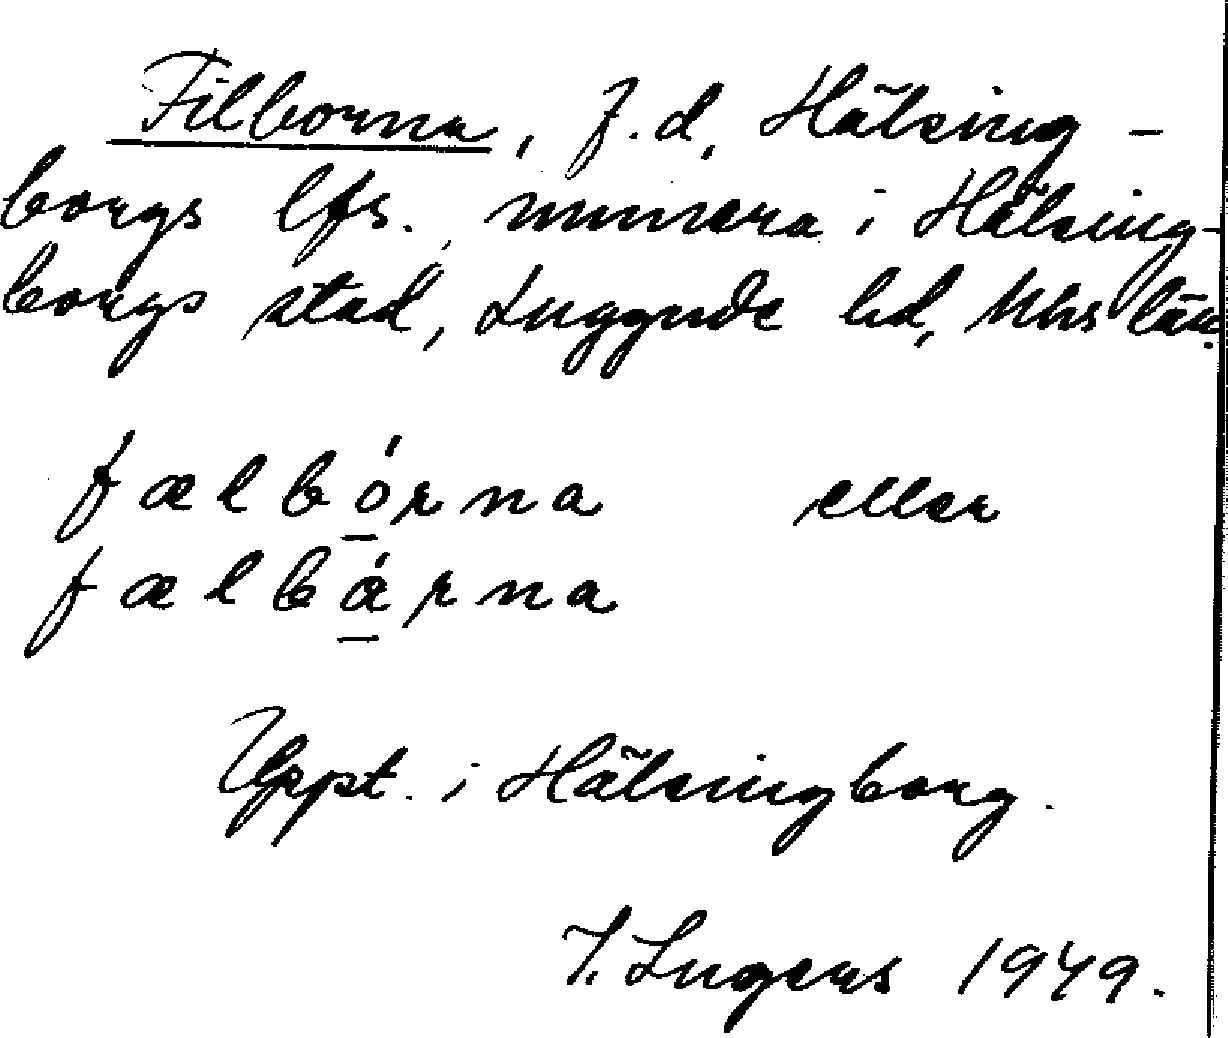 Filborna, f.d. Hälsing-
borgs lfs. numera i Hälsing-
borgs stad, Luggude hd, Mhs län.
fælbó̲rna eller
fælbá̲rna
Uppt. i Hälsingborg.
I. Ingers 1949.